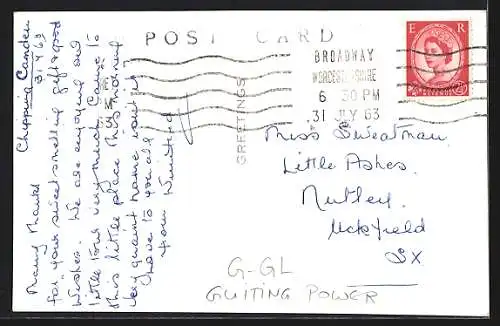 POST CARD
GREETINGS
Chipping Camden
31.7.63
Many Thanks
for your sweet smelling gift & good
wishes. We are enjoying our
little tour very much. Came to
this little place this morning
very quaint name isn't it
love to you all
from Winifred
E R
BROADWAY
WORCESTERSHIRE
6 30 PM
31 JLY 63
Miss Sweatman
Little Ashes
Nutley
Uckfield
SX
G-GL
GUITING POWER